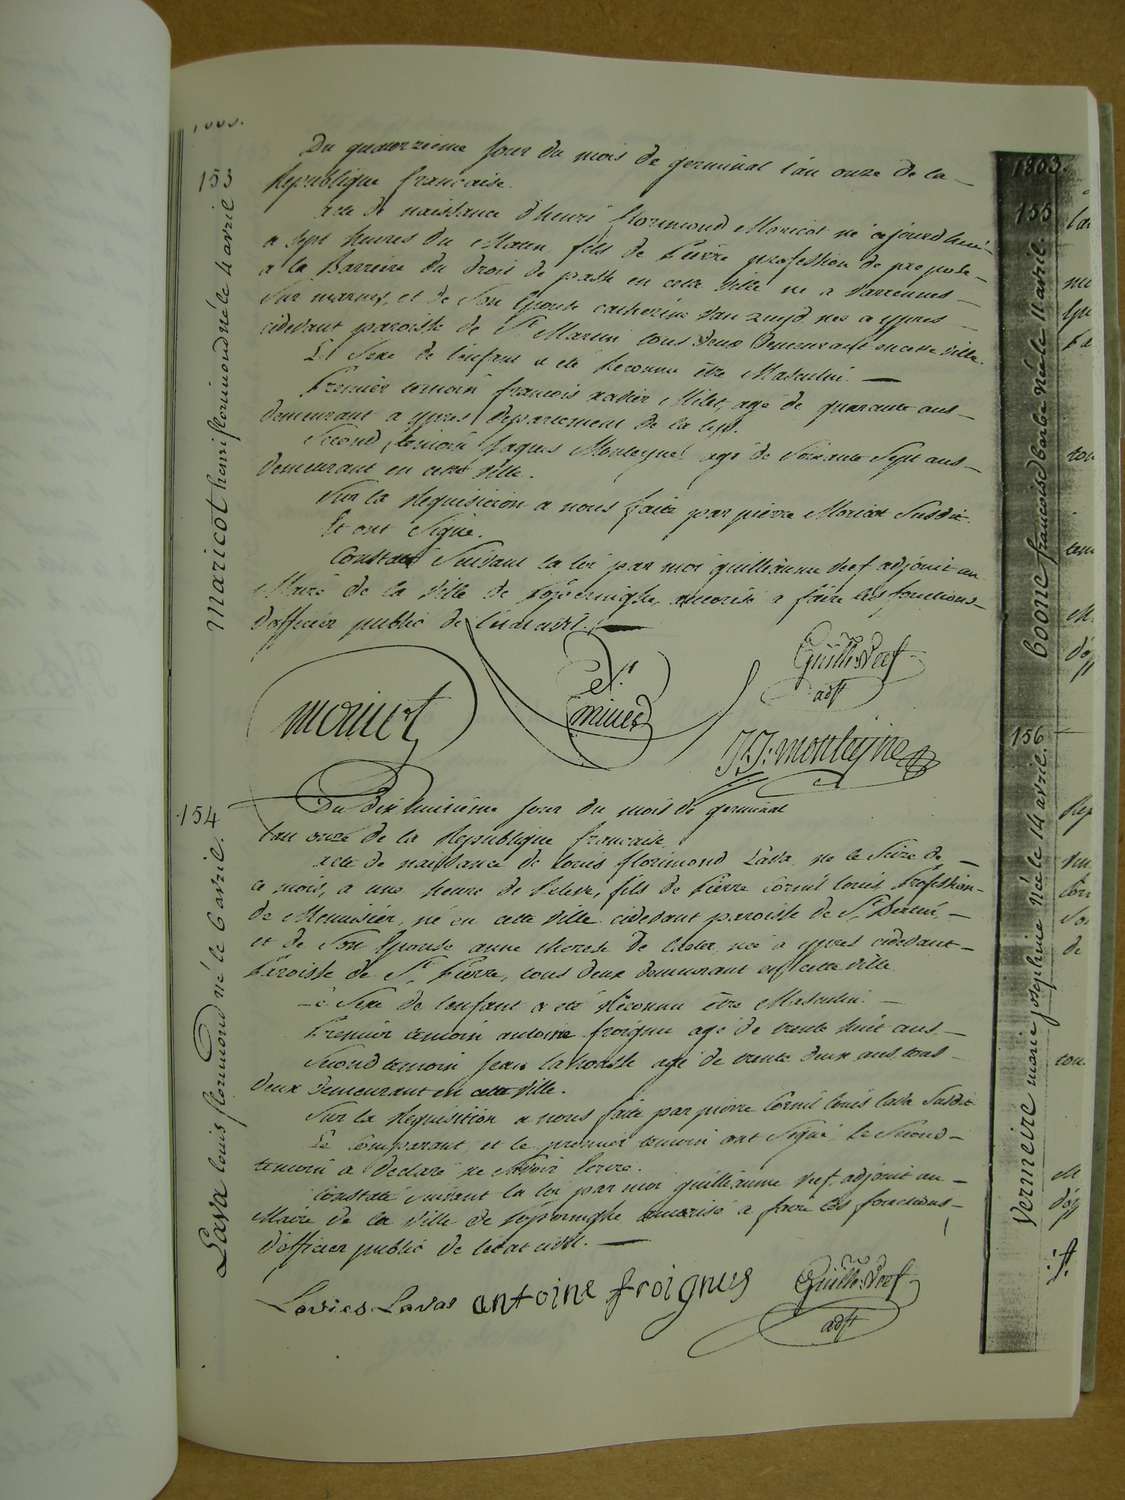 1803.
153
Maricot henri florimond né le 4 avril
Du quatorzieme jour du mois de germinal l'an onze de la
Republique francaise.
acte de naissance d'henri florimond Moricot né cejourd'hui
a sept heures du Matin, fils de Pierre profession de preposé
a la Barriere du droit de passe en cette ville né a Varrennes
sur marne, et de Son Epouse catherine Van née a ypres
cidevant paroisse de St Martin tous deux demeurant en cette ville.
Le Sexe de l'enfant a été Reconnu être Masculin.
Premier temoin francois xavier Milet, agé de quarante ans
demeurant a ypres departement de la Lys.
Second temoin Jaques Monteyne agé de Soixante Sept ans
demeurant en cette ville.
Sur la Requisition a nous faite par pierre Moricot Susdit
Et ont Signe.
Constaté Suivant la loi par moi guilleaume Vref adjoint au
Maire de la Ville de Poperinghe autorisé a faire les fonctions
d'officier public de l'etat civil.
moricot
Guille Vref
adjt
J:J: monteyne
154
Lava louis florimond né le 6 avril.
Du Dix huitième jour du mois de germinal
l'an onze de la Republique francaise
acte de naissance de louis florimond Lava, né le Seize de
ce mois, a une heure de relevé, fils de Pierre Cornil louis Profession
de Menuisier, né en cette ville cidevant paroisse de St Bertin,
et de Son Epouse anne therese de née a ypres cidevant
Paroisse de St Pierre, tous deux demeurant en cette ville
Le Sexe de l'enfant a été Reconnu être Masculin.
Premier temoin antoine froignu agé de trente huit ans
Second temoin Jean agé de trente deux ans tous
deux demeurant en cette ville.
Sur la Requisition a nous faite par pierre Cornil louis lava Susdit
Le Comparant et le premier temoin ont Signé, le Second
temoin a Declaré ne Savoir Ecrire.
Constaté Suivant la loi par moi guilleaume Vref adjoint au
Maire de la Ville de Poperinghe autorisé a faire les fonctions
d'officier public de l'etat civil.
Lavas antoine froignus
Guille Vref
adjt
1803.
155
boone francoise barbe née le 11 avril.
156
Vermeire marie josephine Née le 14 avril.